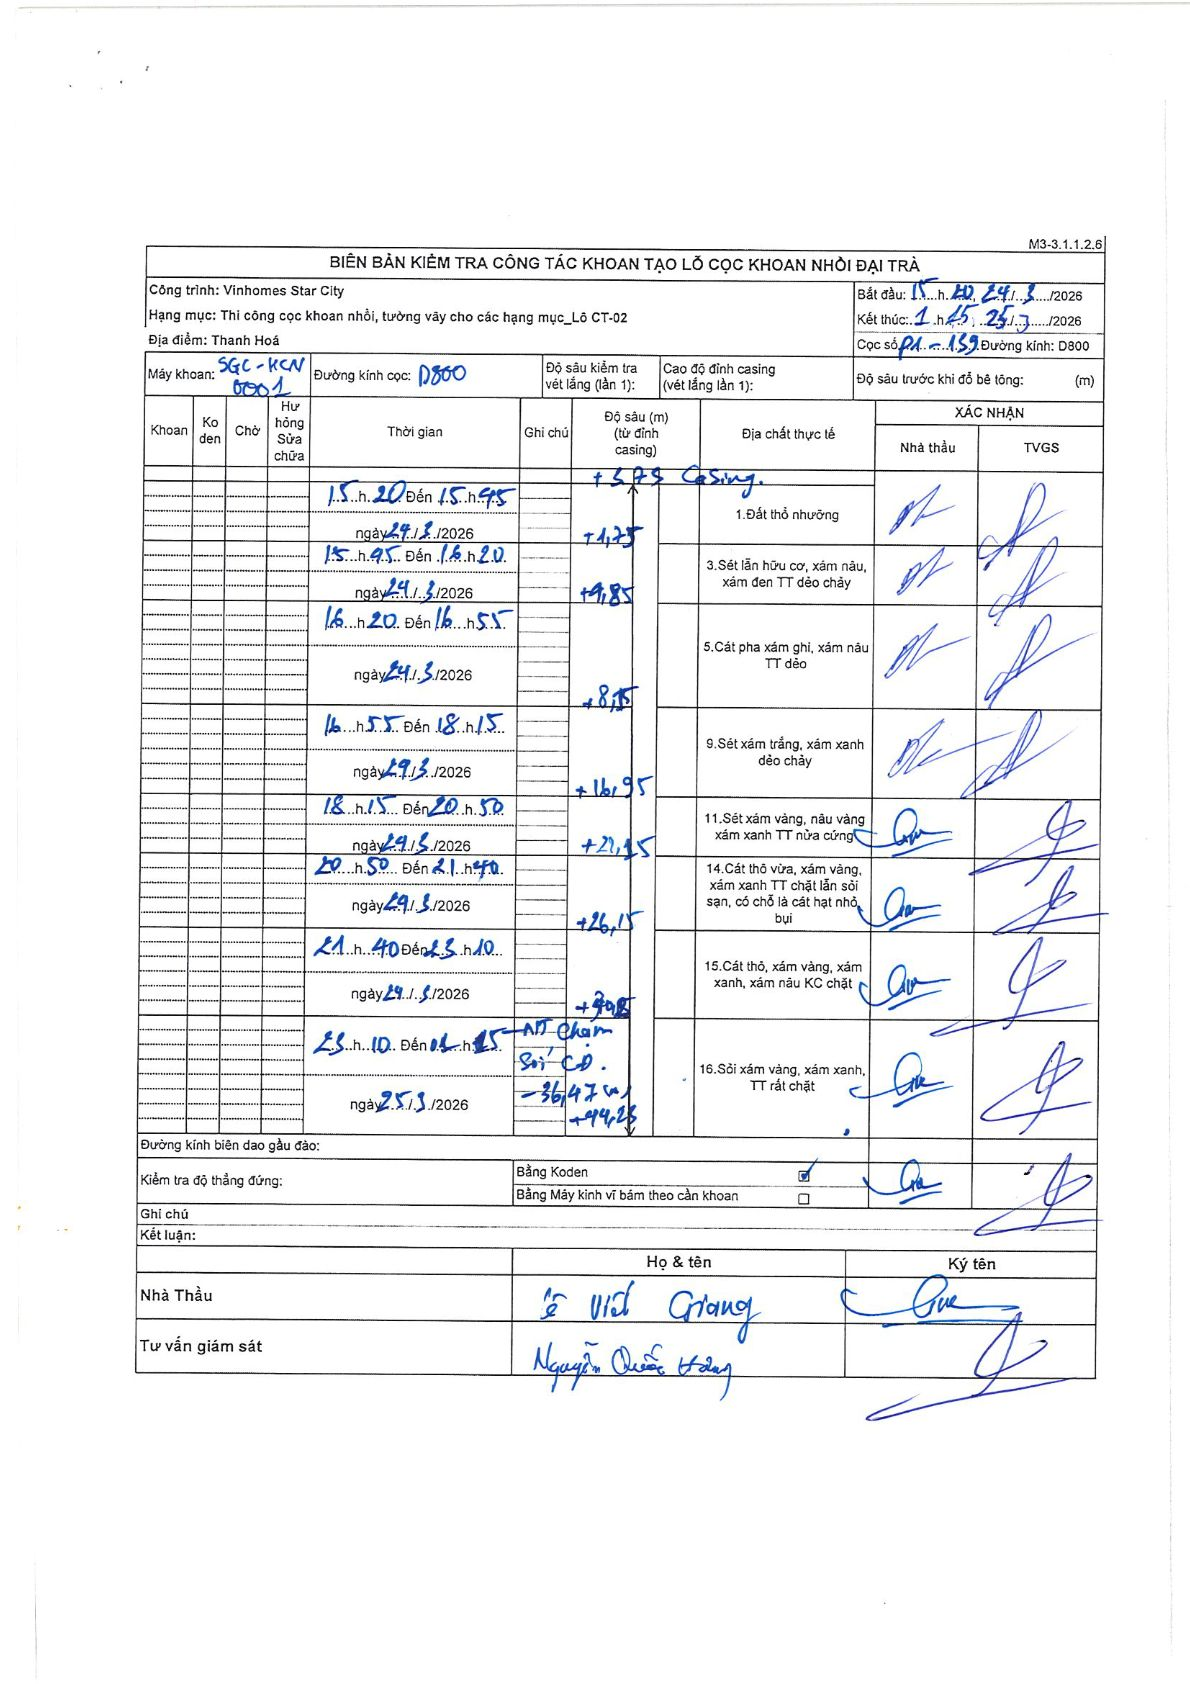 M3-3.1.1.2.6
BIÊN BẢN KIỂM TRA CÔNG TÁC KHOAN TẠO LỖ CỌC KHOAN NHỒI ĐẠI TRÀ
Công trình: Vinhomes Star City
Bắt đầu: 15...h.20, 24./..3..../2026
Hạng mục: Thi công cọc khoan nhồi, tường vây cho các hạng mục_Lô CT-02
Kết thúc:.1.h.15, .25./.3...../2026
Địa điểm: Thanh Hoá
Cọc số P1-139 Đường kính: D800
Máy khoan: SGC-KCN 0001
Đường kính cọc: D800
Độ sâu kiểm tra vét lắng (lần 1):
Cao độ đỉnh casing (vét lắng lần 1):
Độ sâu trước khi đổ bê tông: (m)
Khoan
Ko den
Chờ
Hư hỏng Sửa chữa
Thời gian
Ghi chú
Độ sâu (m) (từ đỉnh casing)
Địa chất thực tế
XÁC NHẬN
Nhà thầu
TVGS
Casing.
15..h.20 Đến 15.h.45
ngày 24./.3../2026
+1,75
1.Đất thổ nhưỡng
15..h.45.. Đến .16.h.20.
ngày 24./..3./2026
3.Sét lẫn hữu cơ, xám nâu, xám đen TT dẻo chảy
16...h 20.. Đến 16...h 55..
ngày 24./..3./2026
5.Cát pha xám ghi, xám nâu TT dẻo
16...h 55.. Đến 18.h.15..
ngày 24./.3../2026
+16,95
9.Sét xám trắng, xám xanh dẻo chảy
18...h.15... Đến 20...h.50.
ngày 24./.3../2026
11.Sét xám vàng, nâu vàng xám xanh TT nửa cứng
20....h.50.... Đến 21..h.40.
ngày 24./..3./2026
+26,15
14.Cát thô vừa, xám vàng, xám xanh TT chặt lẫn sỏi sạn, có chỗ là cát hạt nhỏ, bụi
21...h..40 Đến 23.h 10...
ngày 24./..3./2026
15.Cát thô, xám vàng, xám xanh, xám nâu KC chặt
23..h..10.. Đến 01...h.15
NT chạm sỏi CĐ.
-36,47 m
ngày 25./.3../2026
+44,23
16.Sỏi xám vàng, xám xanh, TT rất chặt
Đường kính biên dao gầu đào:
Kiểm tra độ thẳng đứng:
Bằng Koden ☑
Bằng Máy kinh vĩ bám theo cần khoan ☐
Ghi chú
Kết luận:
Họ & tên
Ký tên
Nhà Thầu
Lê Viết Giang
Tư vấn giám sát
Nguyễn Quốc Hưng